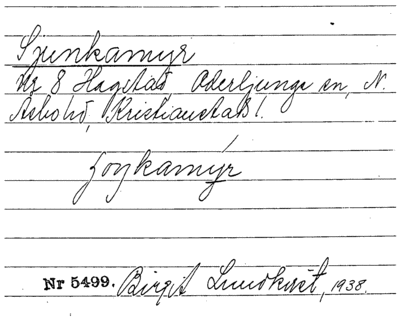 Sjunkamyr
Nr 8 Hagstad, Oderljunga sn, N.
Asbo hd, Kristianstads l.
Nr 5499. Birgit Lundkvist, 1938.